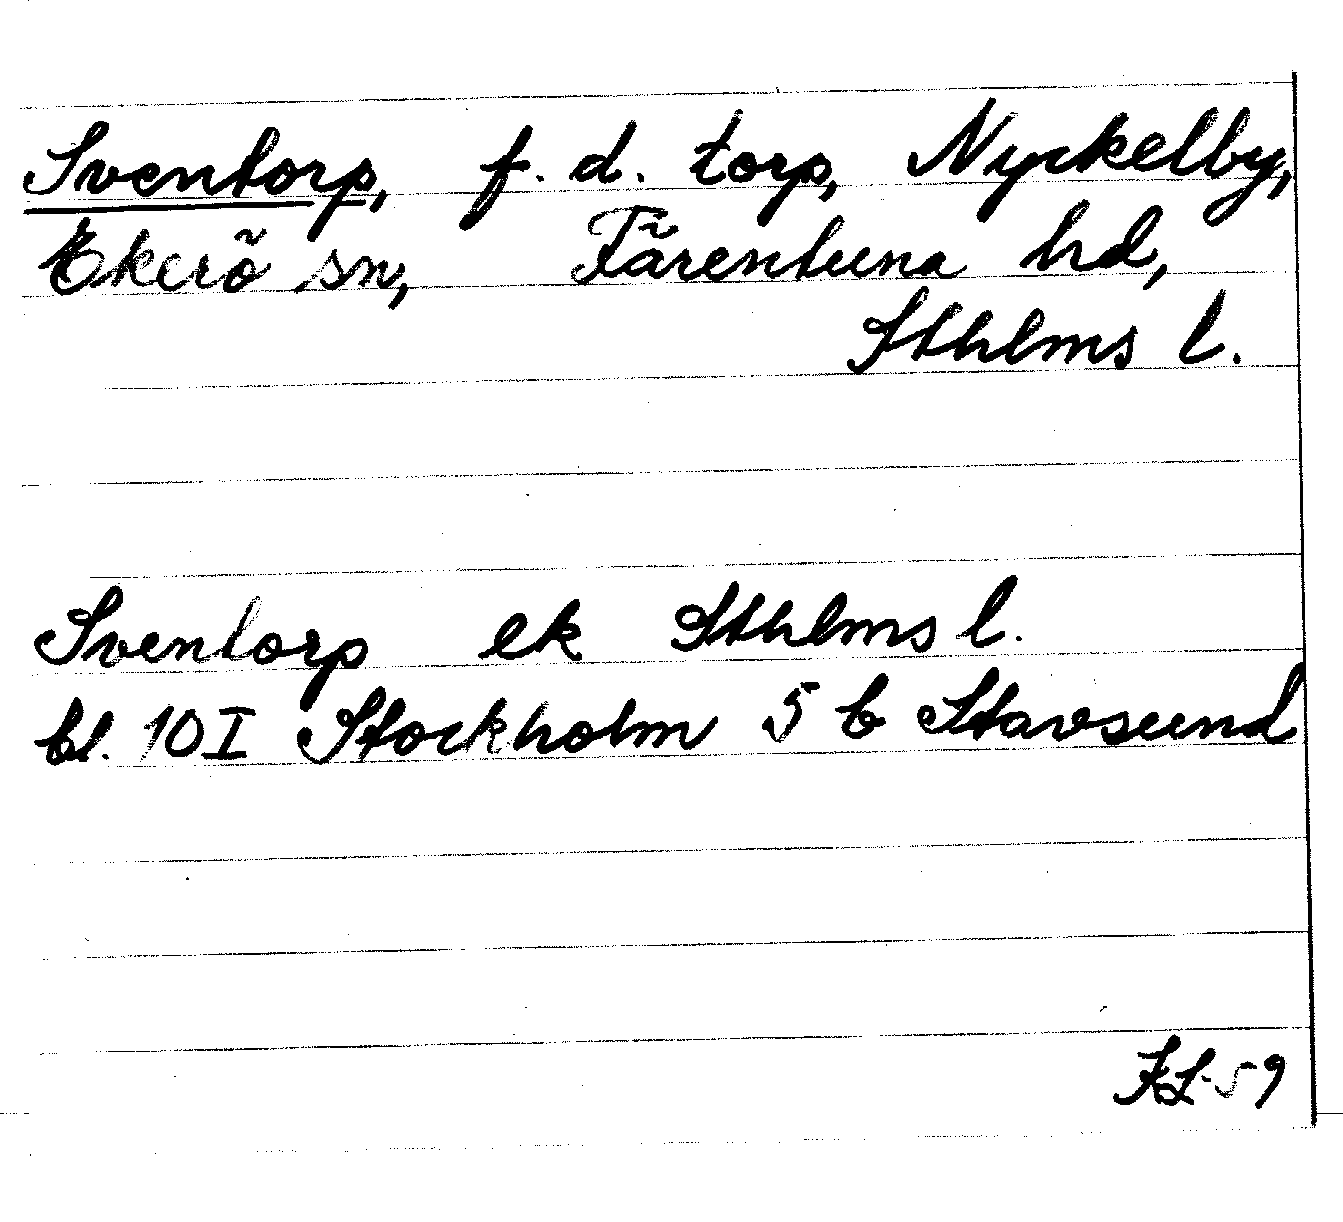 Sventorp, f. d. torp, Nyckelby,
Ekerö sn, Färentuna hd,
Sthlms l.
Sventorp ek Sthlms l.
bl. 10 I Stockholm 5 b Stavsund
KL-59